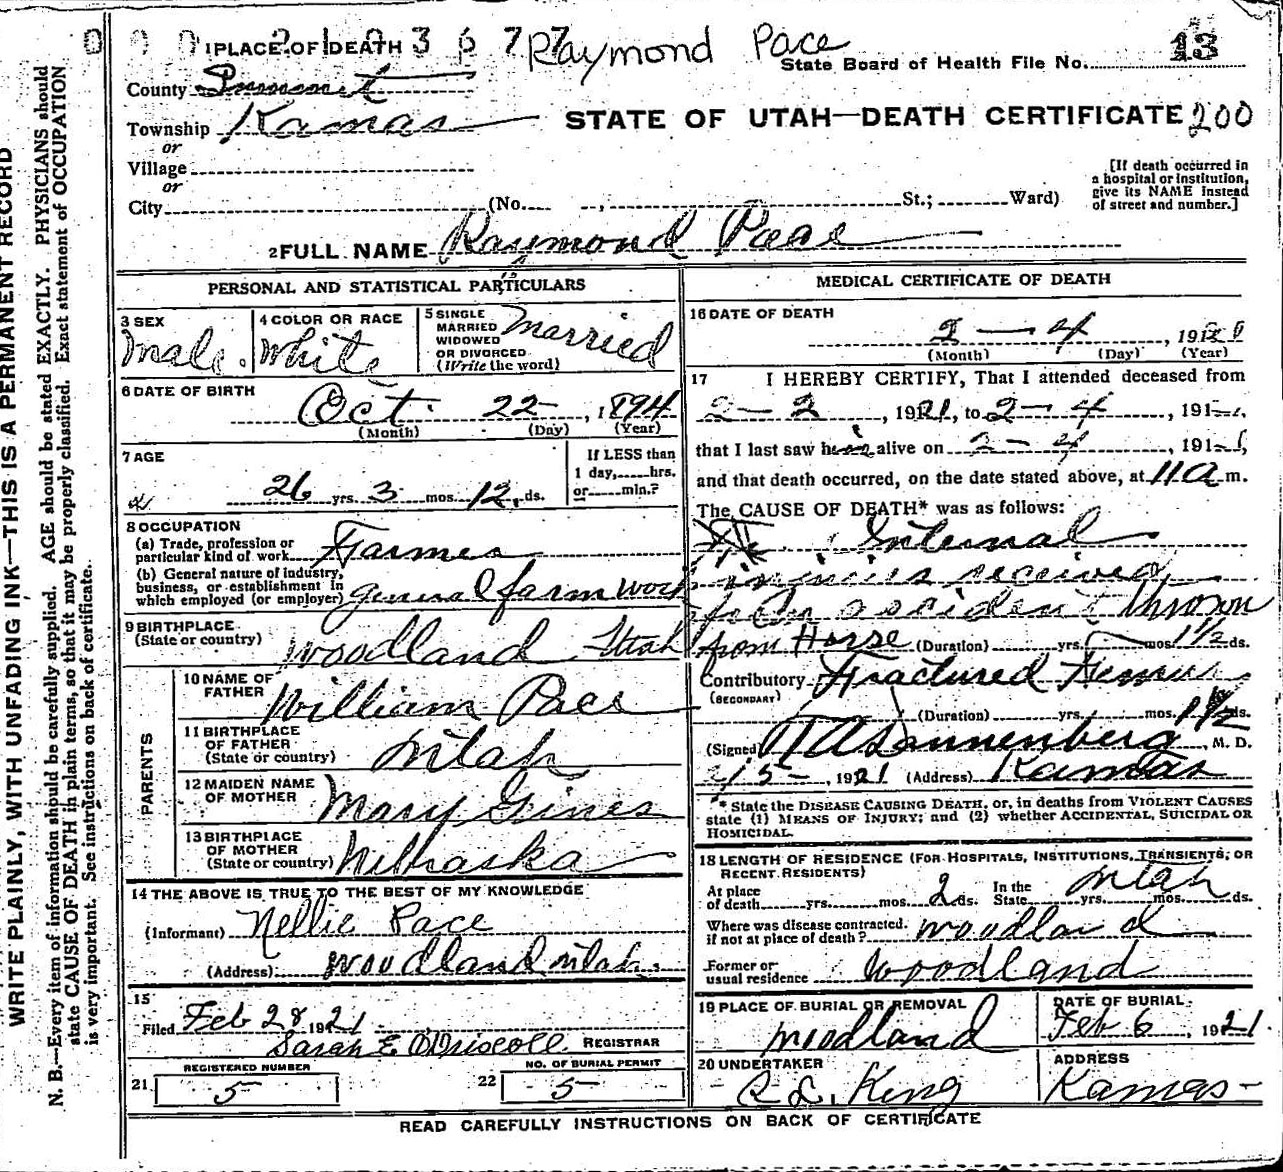 1 PLACE OF DEATH
0 0 0 2 1 0 3 6 7 7
Raymond Pace
State Board of Health File No. 13
County Summit
Township Kamas
STATE OF UTAH—DEATH CERTIFICATE 200
or
Village
or
City (No. , St.; Ward)
[If death occurred in
a hospital or institution,
give its NAME instead
of street and number.]
2 FULL NAME Raymond Pace
PERSONAL AND STATISTICAL PARTICULARS
3 SEX
Male.
4 COLOR OR RACE
White
5 SINGLE
MARRIED
WIDOWED
OR DIVORCED
(Write the word)
Married
6 DATE OF BIRTH
Oct. 22, 1894
(Month) (Day) (Year)
7 AGE
26 yrs. 3 mos. 12 ds.
If LESS than
1 day, hrs.
or min.?
8 OCCUPATION
(a) Trade, profession or
particular kind of work Farmer
(b) General nature of industry,
business, or establishment in
which employed (or employer) general farm work
9 BIRTHPLACE
(State or country) Woodland Utah
PARENTS
10 NAME OF
FATHER William Pace
11 BIRTHPLACE
OF FATHER
(State or country) Utah
12 MAIDEN NAME
OF MOTHER Mary Gines
13 BIRTHPLACE
OF MOTHER
(State or country) Nebraska
14 THE ABOVE IS TRUE TO THE BEST OF MY KNOWLEDGE
(Informant) Nellie Pace
(Address) Woodland Utah.
15
Filed Feb 28 1921
Sarah E O'Driscoll REGISTRAR
REGISTERED NUMBER
21 5
NO. OF BURIAL PERMIT
22 5
MEDICAL CERTIFICATE OF DEATH
16 DATE OF DEATH
2 — 4, 1921
(Month) (Day) (Year)
17 I HEREBY CERTIFY, That I attended deceased from
2 — 2, 1921, to 2 — 4, 191
that I last saw him alive on 2 — 4, 191
and that death occurred, on the date stated above, at 11 a m.
The CAUSE OF DEATH* was as follows:
Internal
injuries received
accident thrown
from Horse (Duration) yrs. mos. 1½ ds.
Contributory Fractured Femur
(SECONDARY)
(Duration) yrs. mos. 1½ ds.
(Signed) Dannenberg, M. D.
2/5 - 1921 (Address) Kamas
* State the DISEASE CAUSING DEATH, or, in deaths from VIOLENT CAUSES
state (1) MEANS OF INJURY; and (2) whether ACCIDENTAL, SUICIDAL OR
HOMICIDAL.
18 LENGTH OF RESIDENCE (FOR HOSPITALS, INSTITUTIONS, TRANSIENTS, OR
RECENT RESIDENTS)
At place
of death yrs. mos. 2 ds.
In the
State yrs. mos. ds. Utah
Where was disease contracted.
if not at place of death? Woodland
Former or
usual residence Woodland
19 PLACE OF BURIAL OR REMOVAL
Woodland
DATE OF BURIAL
Feb 6, 1921.
20 UNDERTAKER
King
ADDRESS
Kamas -
READ CAREFULLY INSTRUCTIONS ON BACK OF CERTIFICATE
WRITE PLAINLY, WITH UNFADING INK—THIS IS A PERMANENT RECORD
N. B.—Every item of information should be carefully supplied. AGE should be stated EXACTLY. PHYSICIANS should
state CAUSE OF DEATH in plain terms, so that it may be properly classified. Exact statement of OCCUPATION
is very important. See instructions on back of certificate.